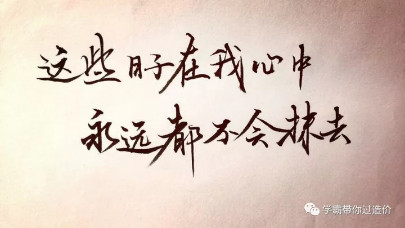 这些日子在我心中
永远都不会抹去
学霸带你过造价